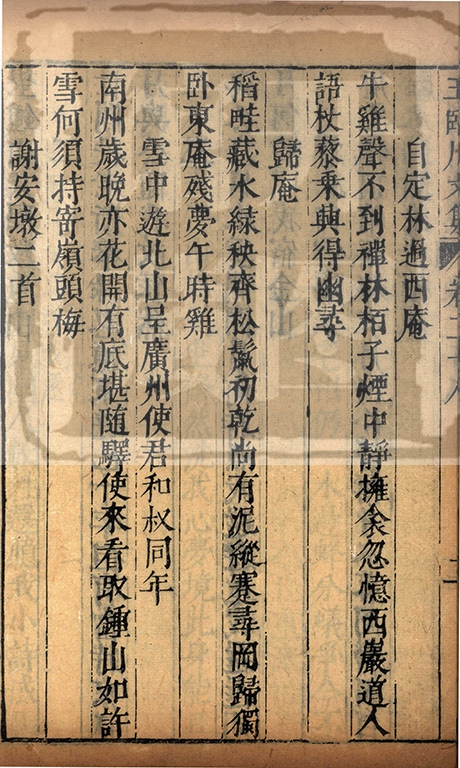 王臨川文集 卷二十八 二
自定林過西庵
牛雞聲不到禪林柏子煙中靜擁衾忽憶西巖道人
語杖藜乗興得幽尋
歸庵
稻畦藏水綠秧齊松鬣初乾尚有泥縱蹇尋岡歸獨
卧東庵殘夢午時雞
雪中遊北山呈廣州使君和叔同年
南州歲晚亦花開有底堪隨驛使來看取鍾山如許
雪何須持寄嶺頭梅
謝安墩二首